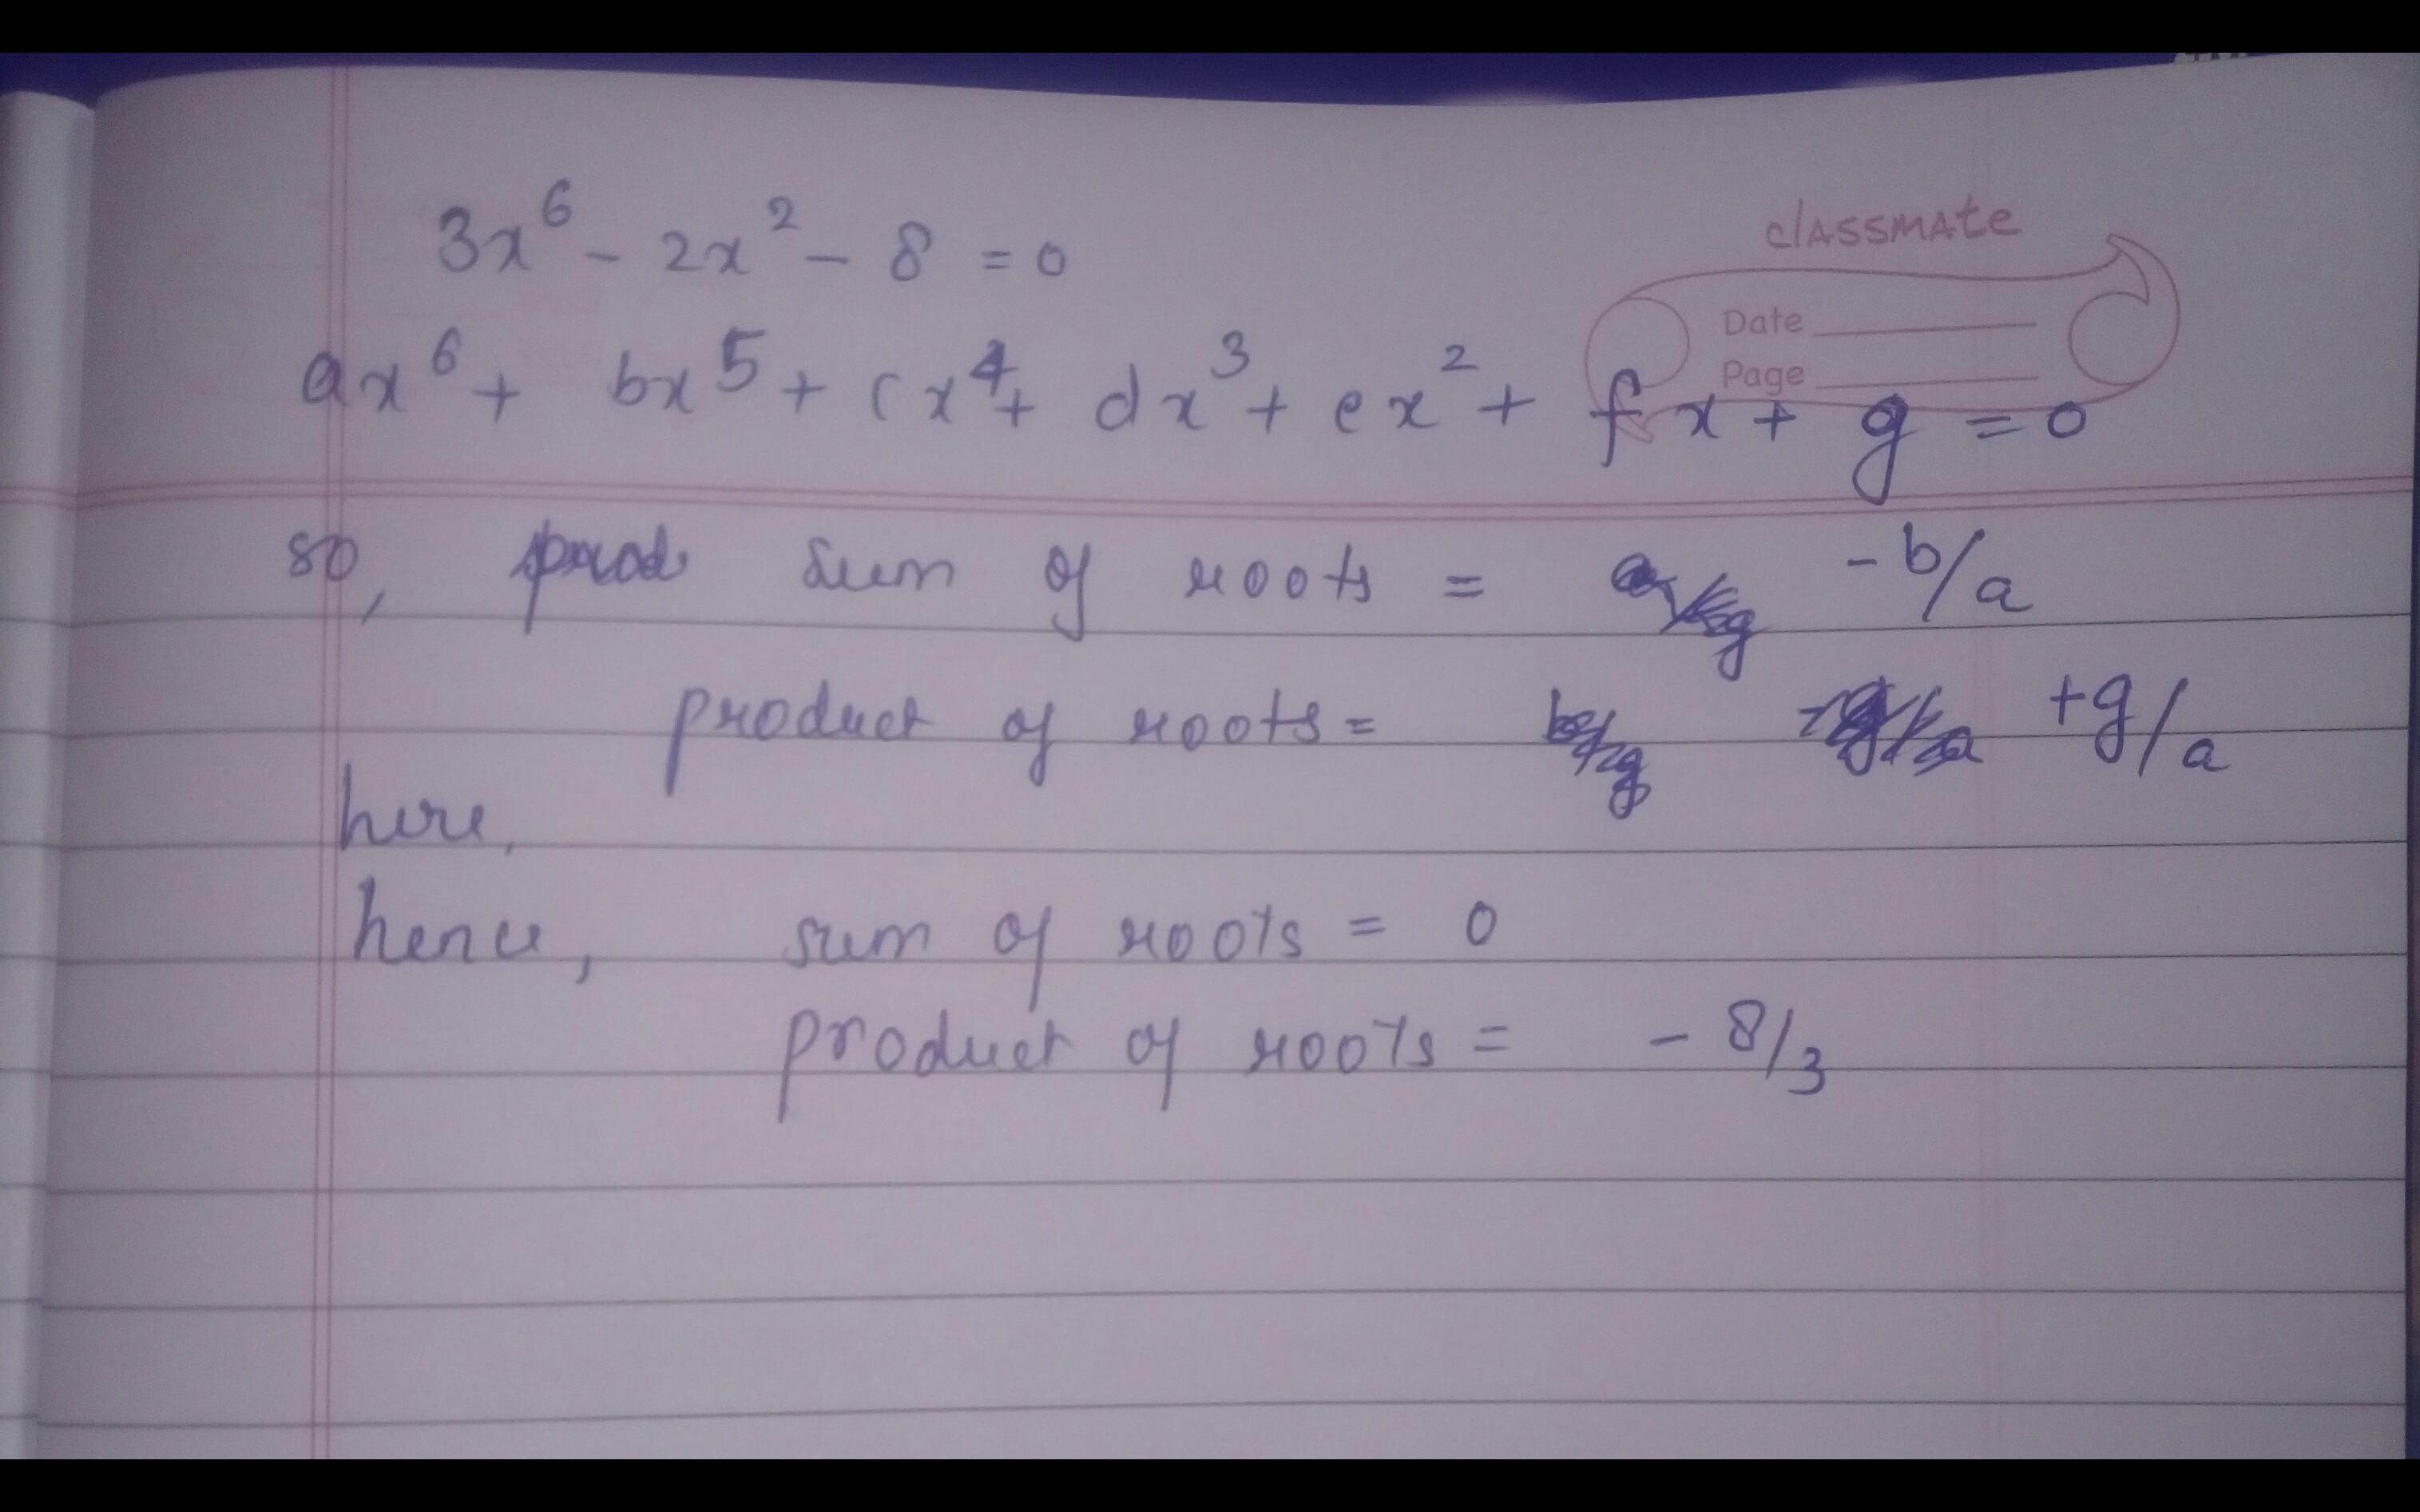 classmate
Date
Page
3x⁶ - 2x² - 8 = 0
ax⁶ + bx⁵ + cx⁴ + dx³ + ex² + fx + g = 0
so, sum of roots = -b/a
product of roots = +g/a
here,
hence, sum of roots = 0
product of roots = - 8/3